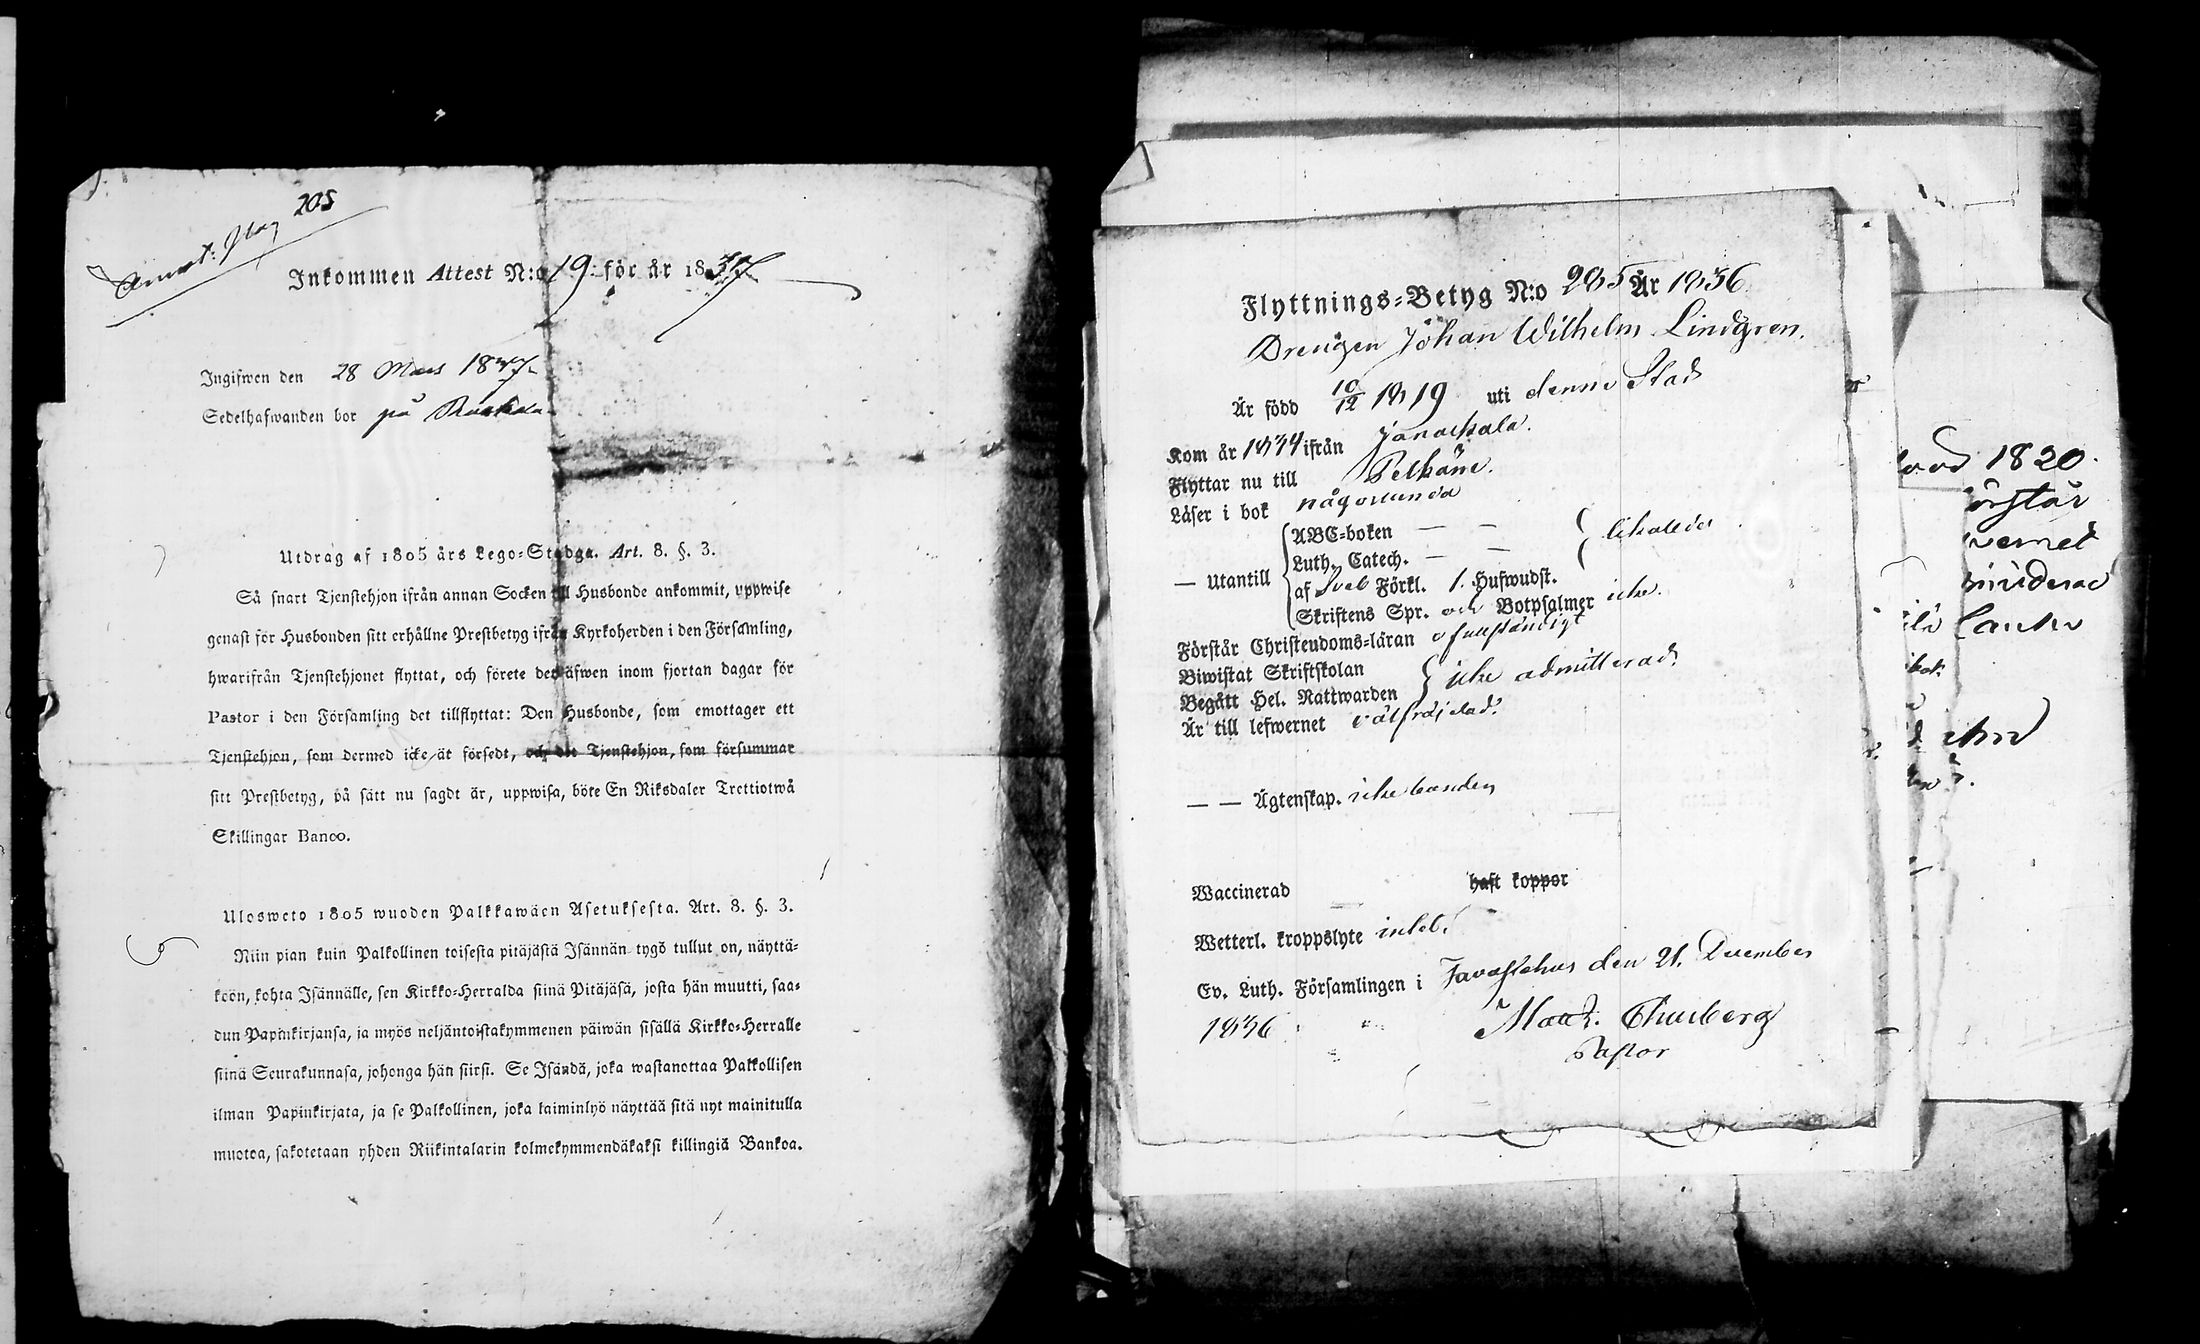 205
Inkommen Attest N:o 19: för år 1837
Ingifwen den 28 Mars 1837.
Sedelhafwanden bor på
Utdrag af 1805 års Lego=Stadga. Art. 8. §. 3.
Så snart Tjenstehjon ifrån annan Socken till Husbonde ankommit, uppwise
genast för Husbonden sitt erhållne Prestbetyg ifrån Kyrkoherden i den Församling,
hwarifrån Tjenstehjonet flyttat, och förete det äfwen inom fjortan dagar för
Pastor i den Församling det tillflyttat: Den Husbonde, som emottager ett
Tjenstehjon, som dermed icke ät försedt, och det Tjenstehjon, som försummar
sitt Prestbetyg, på sätt nu sagdt är, uppwisa, böte En Riksdaler Trettiotwå
Skillingar Banco.
Ulosweto 1805 wuoden Palkkawäen Asetuksesta. Art. 8. §. 3.
Niin pian kuin Palkollinen toisesta pitäjästä Isännän tygö tullut on, näyttä=
köön, kohta Isännälle, sen Kirkko=Herralda siinä Pitäjäsä, josta hän muutti, saa=
dun Papinkirjansa, ja myös neljäntoistakymmenen päiwän sisällä Kirkko=Herralle
siinä Seurakunnasa, johonga hän siirsi. Se Isändä, joka wastanottaa Palkollisen
ilman Papinkirjata, ja se Palkollinen, joka laiminlyö näyttää sitä nyt mainitulla
muotoa, sakotetaan yhden Riikintalarin kolmekymmendäkaksi killingiä Bankoa.
Flyttnings=Betyg N:o 285 År 1836.
Drengen Johan Wilhelm Lindgren.
Är född 10/12 1819 uti denne Stad
Kom år 1834 ifrån Janackala.
Flyttar nu till Pelkäne.
Läser i bok någorlunda
— Utantill ABC=boken — —
Luth. Catech. — — likaledes
af Sveb Förkl. 1. Hufwudst.
Skriftens Spr. och Botpsalmer icke.
Förstår Christendoms=läran ofullständigt
Biwistat Skriftskolan
Begått Hel. Nattwarden icke admitterad.
Är till lefwernet oälfrejdad.
— — Ägtenskap. icke bunden
Waccinerad — haft koppor
Wetterl. kroppslyte intet.
Ev. Luth. Församlingen i Tavastehus den 21. December
1836. Matth. Thunberg
Pastor
1820.